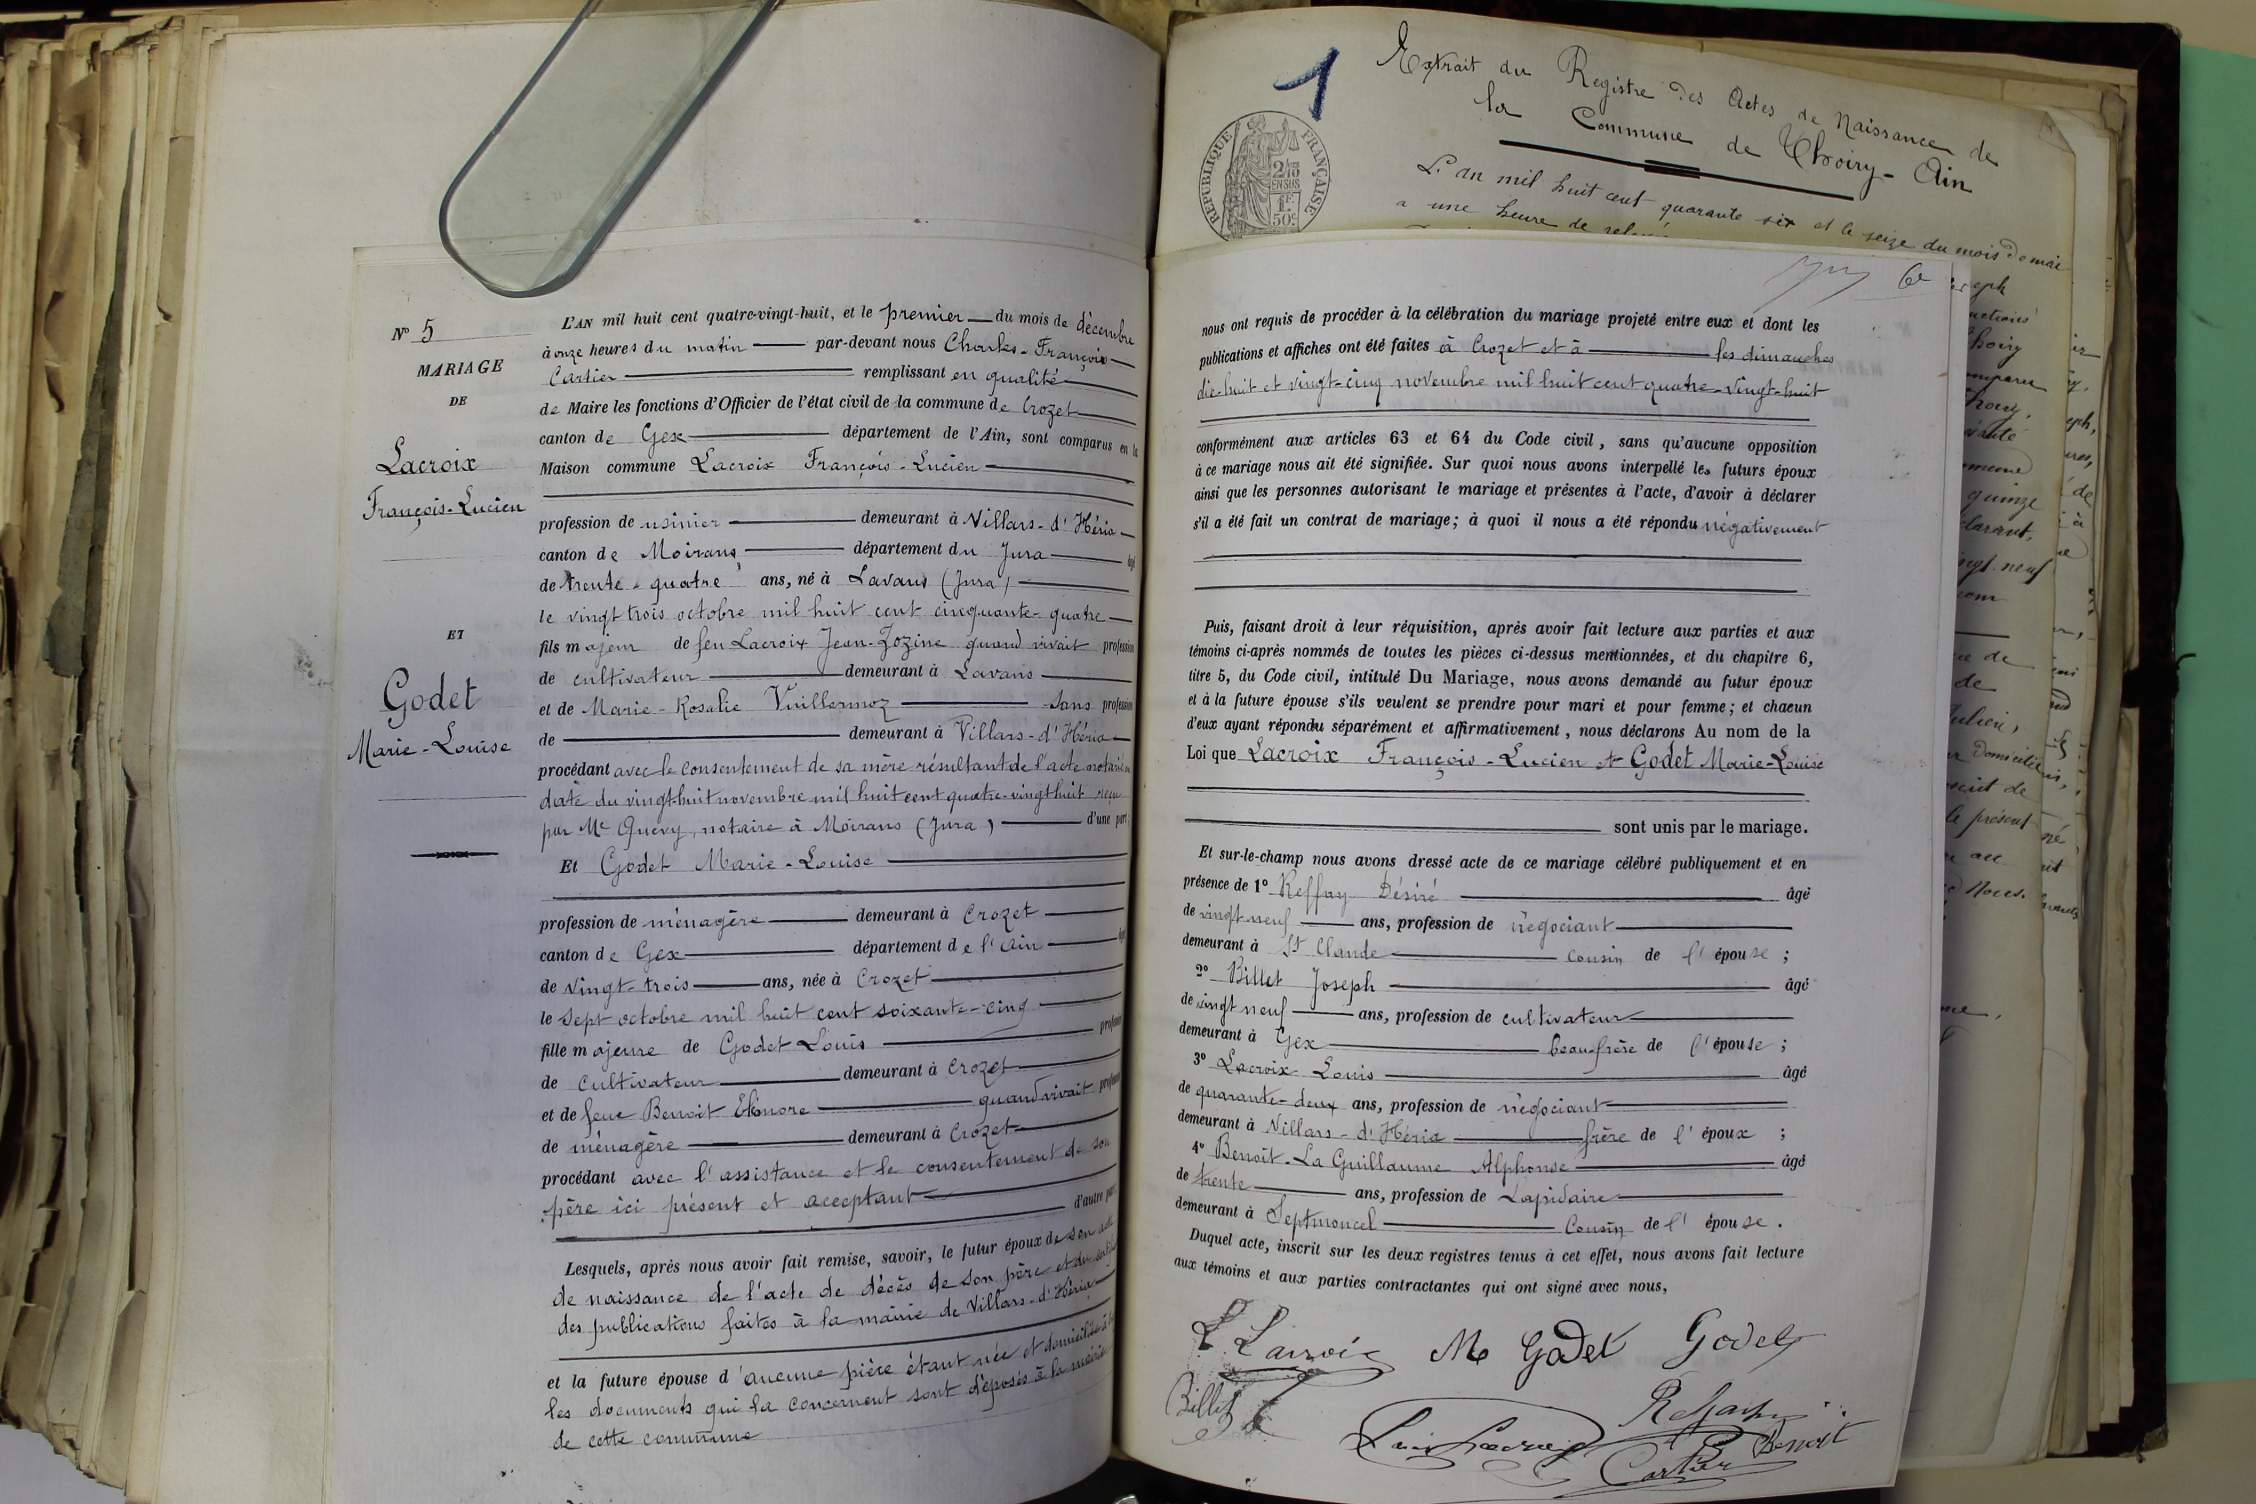 N° 5
MARIAGE
DE
Lacroix
François-Lucien
ET
Godet
Marie-Louise
L'AN mil huit cent quatre-vingt-huit, et le premier du mois de décembre
à onze heures du matin par-devant nous Charles-François
Cartier remplissant en qualité
de Maire les fonctions d'Officier de l'état civil de la commune de Crozet
canton de Gex département de l'Ain, sont comparus en la
Maison commune Lacroix François-Lucien
profession de usinier demeurant à Villars-d'Héria
canton de Moirans département du Jura âgé
de trente-quatre ans, né à Lavans (Jura)
le vingt trois octobre mil huit cent cinquante-quatre
fils majeur de feu Lacroix Jean-Zozine quand vivait profession
de cultivateur demeurant à Lavans
et de Marie-Rosalie Vuillermoz Sans profession
de demeurant à Villars-d'Héria
procédant avec le consentement de sa mère résultant de l'acte notarié en
date du vingt-huit novembre mil huit cent quatre-vingt huit reçu
par Me Quevy, notaire à Moirans (Jura) d'une part;
Et Godet Marie-Louise
profession de ménagère demeurant à Crozet
canton de Gex département de l'Ain âgé
de vingt-trois ans, née à Crozet
le sept octobre mil huit cent soixante-cinq
fille majeure de Godet Louis profession
de cultivateur demeurant à Crozet
et de feue Benoit Eléonore quand vivait profession
de ménagère demeurant à Crozet
procédant avec l'assistance et le consentement de son
père ici présent et acceptant d'autre part
Lesquels, après nous avoir fait remise, savoir, le futur époux de son acte
de naissance de l'acte de décès de son père et du certificat
des publications faites à la mairie de Villars-d'Héria
et la future épouse d'aucune pièce étant née et domiciliée à
les documents qui la concernent sont déposés à la mairie
de cette commune
1
Extrait du Registre des Actes de Naissance de
la Commune de Thoiry - Ain
REPUBLIQUE FRANÇAISE
2/10 EN SUS
1F. 50c
L'an mil huit cent quarante six et le seize du mois de mai
a une heure de
nous ont requis de procéder à la célébration du mariage projeté entre eux et dont les
publications et affiches ont été faites à Crozet et à les dimanches
dix-huit et vingt-cinq novembre mil huit cent quatre-vingt-huit
conformément aux articles 63 et 64 du Code civil, sans qu'aucune opposition
à ce mariage nous ait été signifiée. Sur quoi nous avons interpellé les futurs époux
ainsi que les personnes autorisant le mariage et présentes à l'acte, d'avoir à déclarer
s'il a été fait un contrat de mariage; à quoi il nous a été répondu négativement
Puis, faisant droit à leur réquisition, après avoir fait lecture aux parties et aux
témoins ci-après nommés de toutes les pièces ci-dessus mentionnées, et du chapitre 6,
titre 5, du Code civil, intitulé Du Mariage, nous avons demandé au futur époux
et à la future épouse s'ils veulent se prendre pour mari et pour femme; et chacun
d'eux ayant répondu séparément et affirmativement, nous déclarons Au nom de la
Loi que Lacroix François-Lucien et Godet Marie-Louise
sont unis par le mariage.
Et sur-le-champ nous avons dressé acte de ce mariage célébré publiquement et en
présence de 1° Reffay Désiré âgé
de vingt neuf ans, profession de négociant
demeurant à St Claude cousin de l'épouse;
2° Billet Joseph âgé
de vingt neuf ans, profession de cultivateur
demeurant à Gex beau-frère de l'épouse;
3° Lacroix Louis âgé
de quarante-deux ans, profession de négociant
demeurant à Villars-d'Héria frère de l'époux;
4° Benoit-La Guillaume Alphonse âgé
de trente ans, profession de Lapidaire
demeurant à Septmoncel Cousin de l'épouse.
Duquel acte, inscrit sur les deux registres tenus à cet effet, nous avons fait lecture
aux témoins et aux parties contractantes qui ont signé avec nous,
L Lacroix M Godet Godet
Billet Louis Lacroix Reffay
Cartier Benoit